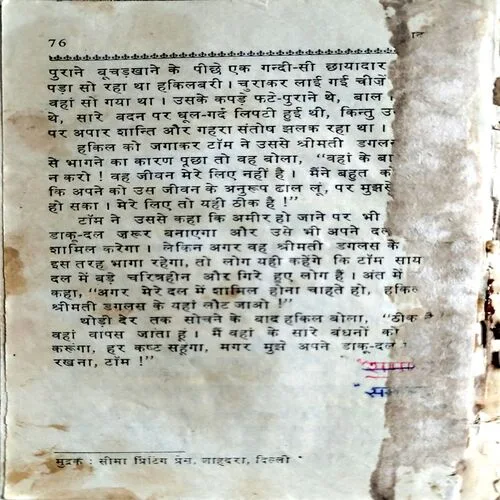 76
पुराने बूचड़खाने के पीछे एक गन्दी-सी छायादार
पड़ा सो रहा था हकिलबरी। चुराकर लाई गई चीजें
वहां सो गया था। उसके कपड़े फटे-पुराने थे, बाल
थे, सारे बदन पर धूल-गर्द लिपटी हुई थी, किन्तु
पर अपार शान्ति और गहरा संतोष झलक रहा था।
हकिल को जगाकर टॉम ने उससे श्रीमती डगलस
से भागने का कारण पूछा तो वह बोला, "वहां के बा
न करो! वह जीवन मेरे लिए नहीं है। मैंने बहुत को
कि अपने को उस जीवन के अनुरूप ढाल लूं, पर मुझसे
हो सका। मेरे लिए तो यही ठीक है!"
टॉम ने उससे कहा कि अमीर हो जाने पर भी
डाकू-दल जरूर बनाएगा और उसे भी अपने दल
शामिल करेगा। लेकिन अगर वह श्रीमती डगलस के
इस तरह भागा रहेगा, तो लोग यही कहेंगे कि टॉम साय
दल में बड़े चरित्रहीन और गिरे हुए लोग हैं। अंत में
कहा, "अगर मेरे दल में शामिल होना चाहते हो, हकिल
श्रीमती डगलस के यहां लौट जाओ!"
थोड़ी देर तक सोचने के बाद हकिल बोला, "ठीक है
वहां वापस जाता हूं। मैं वहां के सारे बंधनों को
करूंगा, हर कष्ट सहूंगा, मगर मुझे अपने डाकू-दल
रखना, टॉम!"
मुद्रक : सीमा प्रिंटिंग प्रेस, शाहदरा, दिल्ली